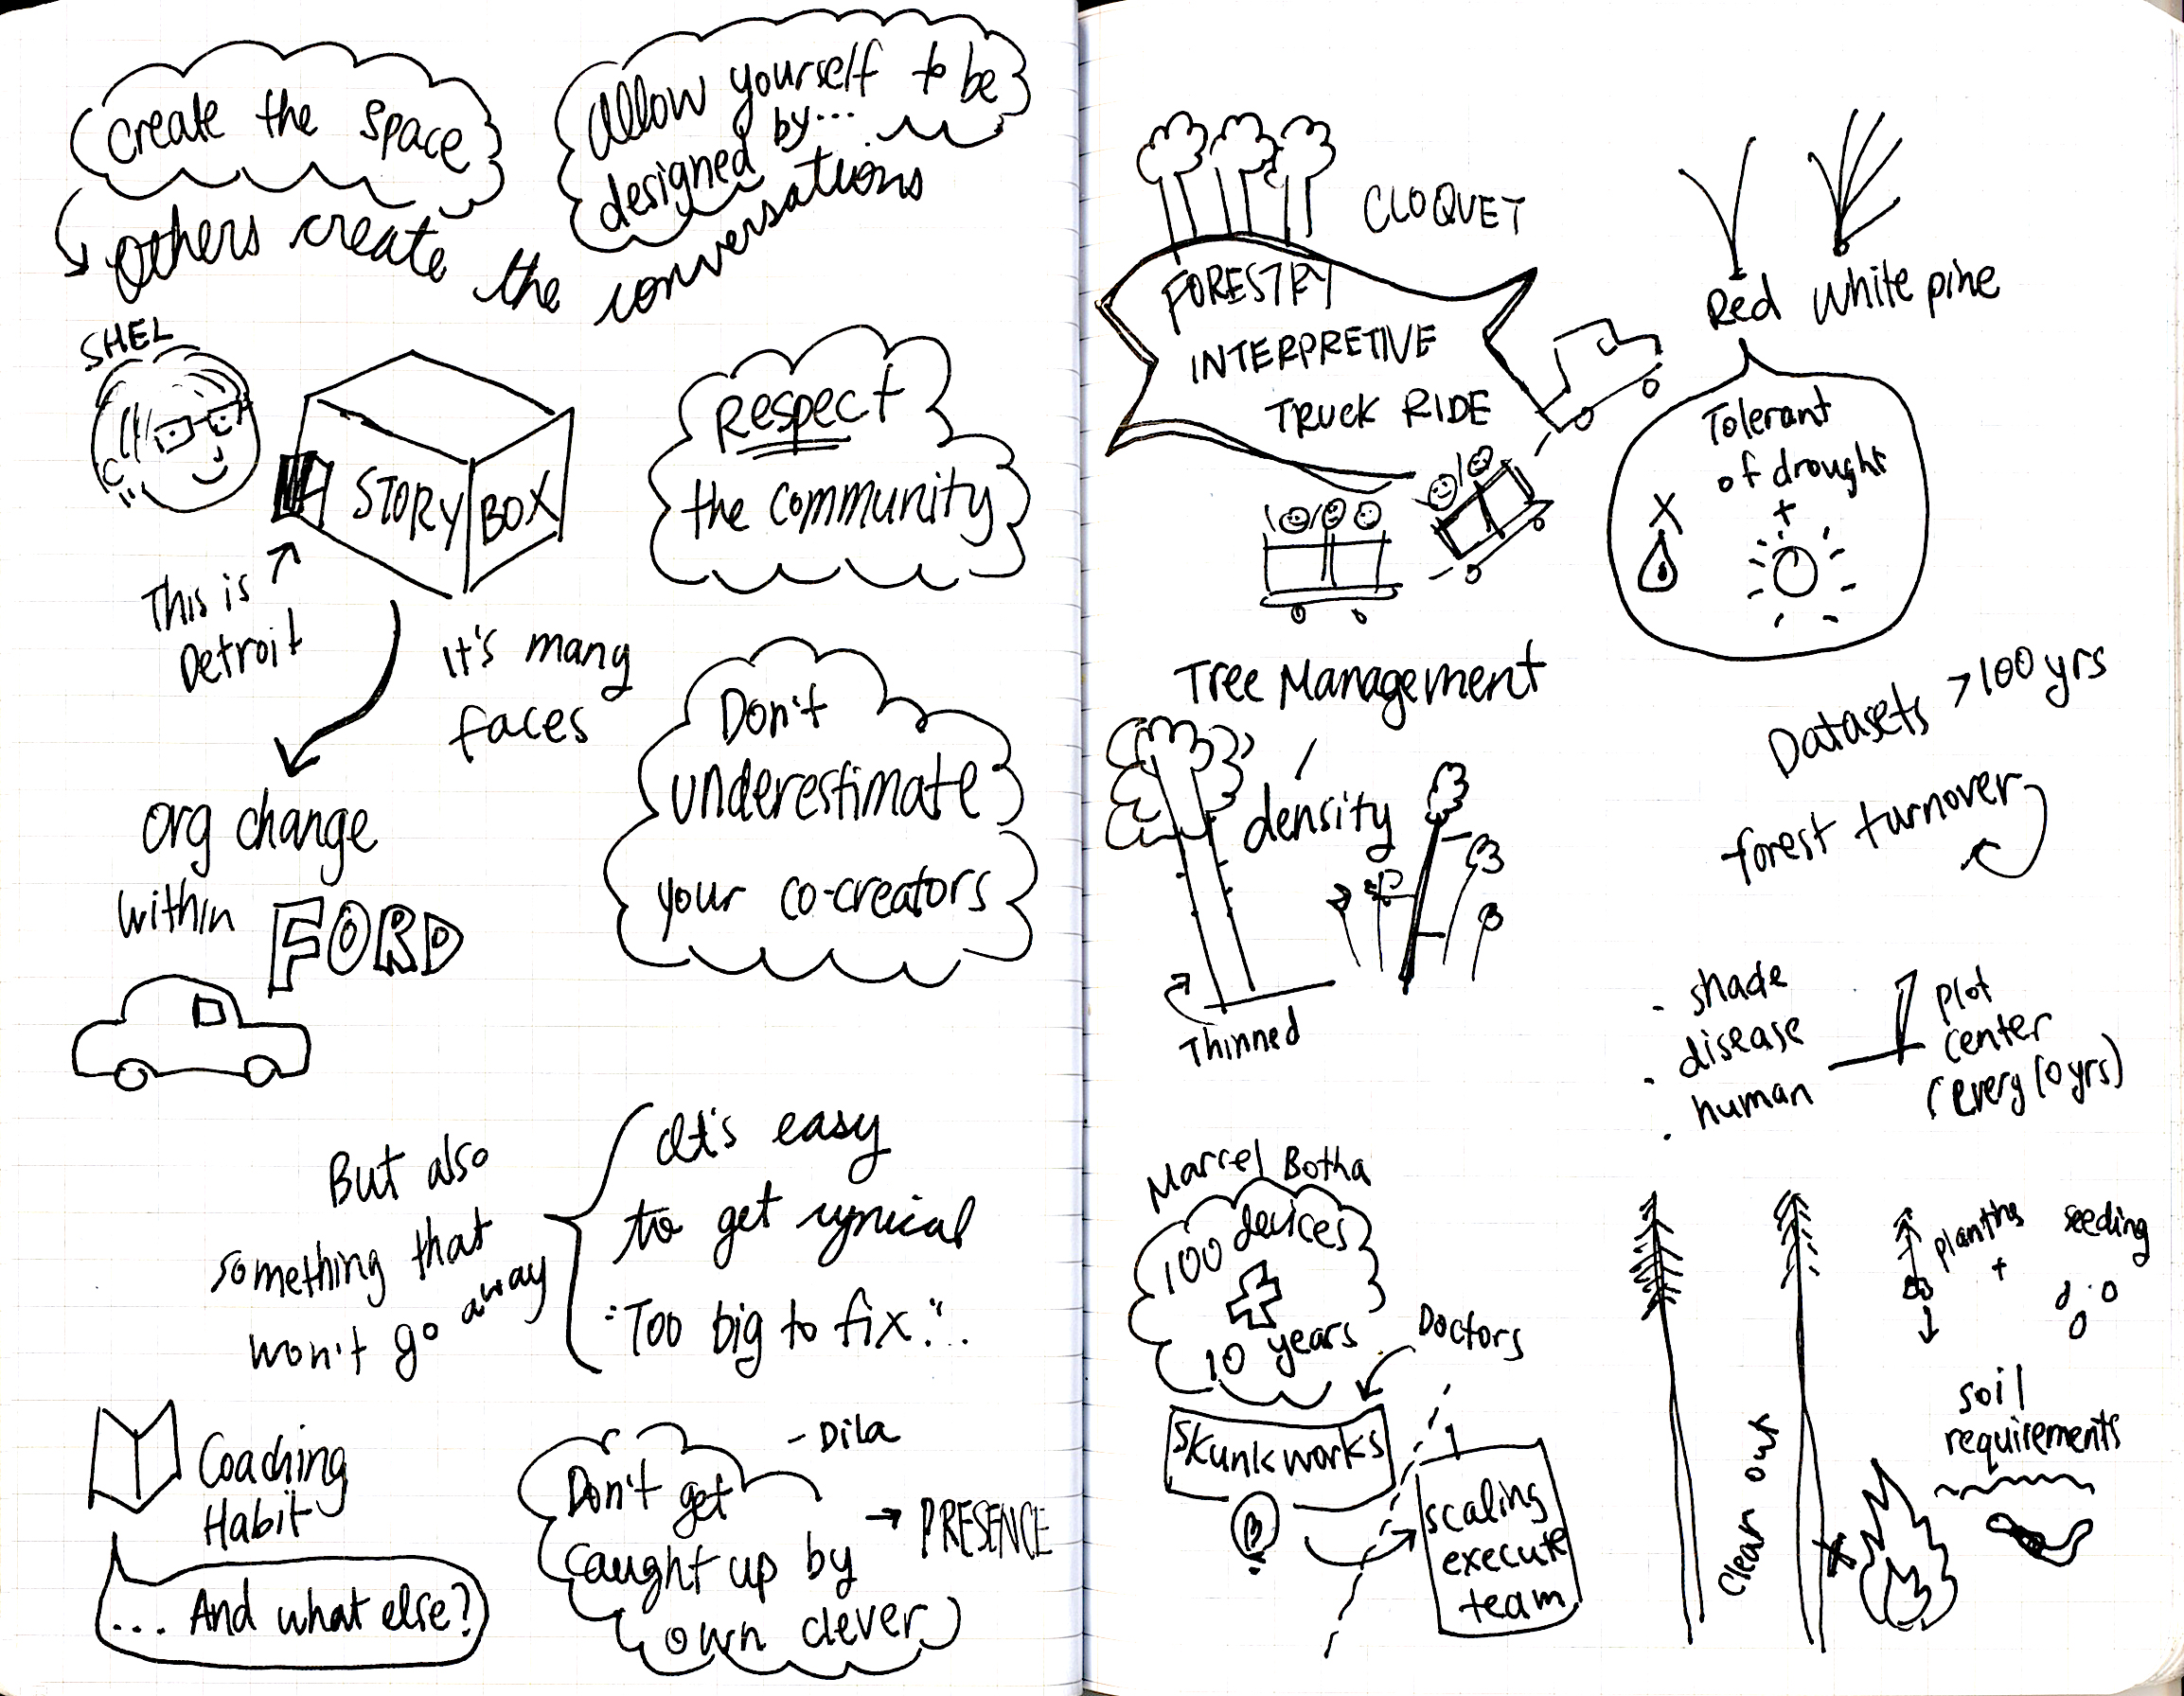 Create the space
others create the conversations
Allow yourself to be
designed by...
SHEL
STORY BOX
This is
Detroit
It's many
faces
Respect
the community
org change
within
FORD
Don't
underestimate
your co-creators
But also
something that
won't go away
It's easy
to get cynical
"Too big to fix"...
Coaching
Habit
... And what else?
- Dila
Don't get
caught up by
own clever
→ PRESENCE
CLOQUET
FORESTRY
INTERPRETIVE
TRUCK RIDE
Red White pine
Tolerant
of drought
+
Tree Management
density
Thinned
Datasets >100 yrs
forest turnover
· shade
· disease
· human
plot
center
(every 10 yrs)
Marcel Botha
100 devices
10 years
Doctors
Skunkworks
scaling
execute
team
seeding
+
soil
requirements
Clear out